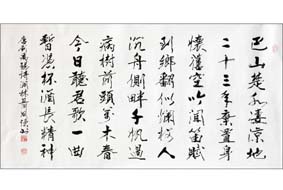 巴山楚水凄涼地
二十三年棄置身
懷舊空吟聞笛賦
到鄉翻似爛柯人
沉舟側畔千帆過
病樹前頭萬木春
今日聽君歌一曲
暫憑杯酒長精神
唐劉禹錫詩